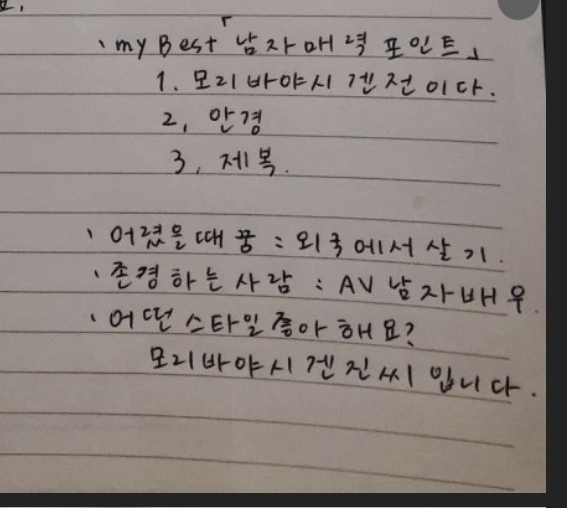 、my Best 「남자매력 포인트」
1. 모리바야시 겐전이다.
2, 안경
3, 제복.
、어렸을때 꿈 : 외국에서 살기.
、존경하는 사람 : AV 남자배우.
、어떤 스타일 좋아해요?
모리바야시 겐진씨 입니다.